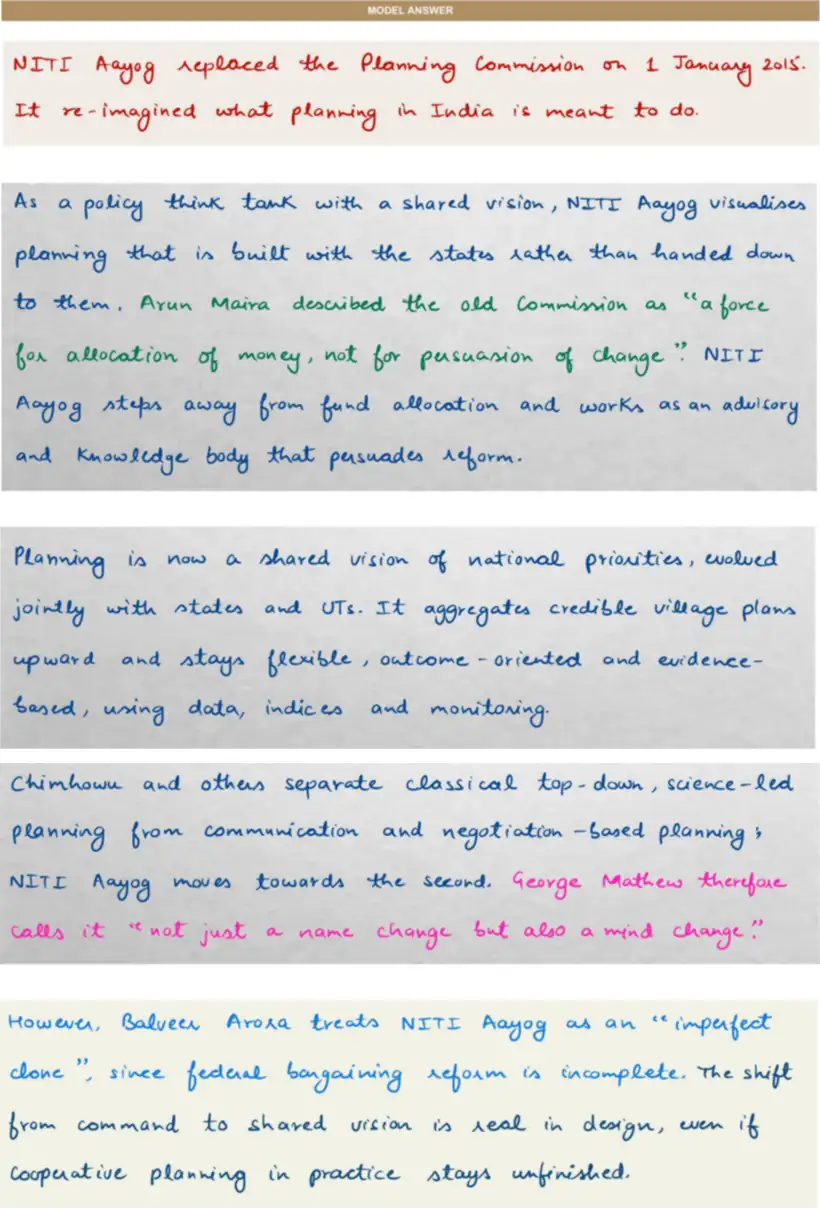 MODEL ANSWER
NITI Aayog replaced the Planning Commission on 1 January 2015.
It re-imagined what planning in India is meant to do.
As a policy think tank with a shared vision, NITI Aayog visualises
planning that is built with the states rather than handed down
to them. Arun Maira described the old Commission as "a force
for allocation of money, not for persuasion of change". NITI
Aayog steps away from fund allocation and works as an advisory
and knowledge body that persuades reform.
Planning is now a shared vision of national priorities, evolved
jointly with states and UTs. It aggregates credible village plans
upward and stays flexible, outcome-oriented and evidence-
based, using data, indices and monitoring.
Chimhowu and others separate classical top-down, science-led
planning from communication and negotiation-based planning;
NITI Aayog moves towards the second. George Mathew therefore
calls it "not just a name change but also a mind change."
However, Balveer Arora treats NITI Aayog as an "imperfect
clone", since federal bargaining reform is incomplete. The shift
from command to shared vision is real in design, even if
cooperative planning in practice stays unfinished.